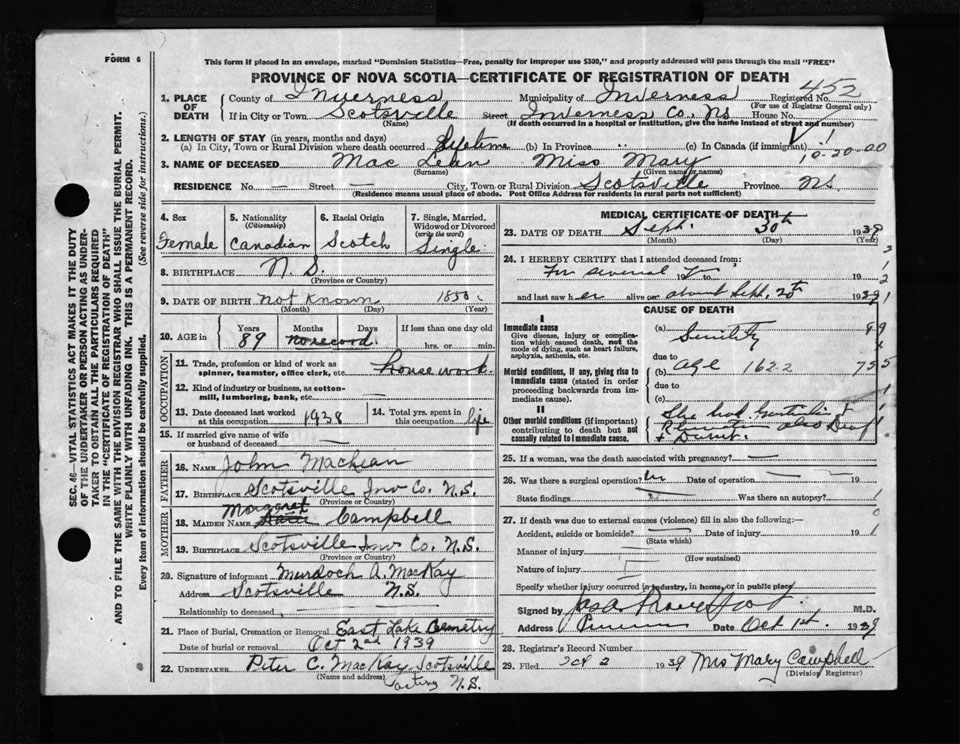 FORM 6
This form if placed in an envelope, marked "Dominion Statistics—Free, penalty for improper use $300," and properly addressed will pass through the mail "FREE"
PROVINCE OF NOVA SCOTIA—CERTIFICATE OF REGISTRATION OF DEATH
452
1. PLACE OF DEATH County of Inverness Municipality of Inverness Registered No.
(For use of Registrar General only)
If in City or Town Scotsville Street Inverness Co. NS House No.
(Name) (If death occurred in a hospital or institution, give the name instead of street and number)
2. LENGTH OF STAY (in years, months and days)
(a) In City, Town or Rural Division where death occurred lifetime (b) In Province (c) In Canada (if immigrant)
10-20-00
3. NAME OF DECEASED Mac Lean Miss Mary
(Surname) (Given name or names)
RESIDENCE No. — Street — City, Town or Rural Division Scotsville Province NS.
(Residence means usual place of abode. Post Office Address for residents in rural parts not sufficient)
4. Sex Female
5. Nationality (Citizenship) Canadian
6. Racial Origin Scotch
7. Single, Married, Widowed or Divorced (write the word) Single
8. BIRTHPLACE N. S.
(Province or Country)
9. DATE OF BIRTH not known 1850
(Month) (Day) (Year)
10. AGE in Years 89 Months Days no record If less than one day hrs. or min.
OCCUPATION
11. Trade, profession or kind of work as spinner, teamster, office clerk, etc. housework
12. Kind of industry or business, as cotton-mill, lumbering, bank, etc. —
13. Date deceased last worked at this occupation 1938
14. Total yrs. spent in this occupation life
15. If married give name of wife or husband of deceased —
FATHER
16. NAME John MacLean
17. BIRTHPLACE Scotsville Inv Co. N.S.
(Province or Country)
MOTHER
Margaret
18. MAIDEN NAME Campbell
19. BIRTHPLACE Scotsville Inv Co. N.S.
(Province or Country)
20. Signature of informant Murdoch A. MacKay
Address Scotsville N.S.
Relationship to deceased —
21. Place of Burial, Cremation or Removal East Lake Cemetery
Date of burial or removal Oct 2nd 1939
22. UNDERTAKER Peter C. MacKay Scotsville
(Name and address) acting N.S.
MEDICAL CERTIFICATE OF DEATH
23. DATE OF DEATH Sept. 30th 1939
(Month) (Day) (Year)
24. I HEREBY CERTIFY that I attended deceased from:
For several yrs
and last saw her alive on about Sept. 20th 1939
CAUSE OF DEATH
I
Immediate cause
Give disease, injury or complication which caused death, not the mode of dying, such as heart failure, asphyxia, asthenia, etc.
(a) Senility
due to
Morbid conditions, if any, giving rise to immediate cause (stated in order proceeding backwards from immediate cause).
(b) age 162.2
due to
(c)
II
Other morbid conditions (if important) contributing to death but not causally related to immediate cause.
She had + also Deaf
+ Dumb.
25. If a woman, was the death associated with pregnancy? —
26. Was there a surgical operation? no Date of operation — 19
State findings — Was there an autopsy?
27. If death was due to external causes (violence) fill in also the following:—
Accident, suicide or homicide? — Date of injury 19
(State which)
Manner of injury —
(How sustained)
Nature of injury
Specify whether injury occurred in industry, in home, or in public place
Signed by M.D.
Address Date Oct 1st. 1939
28. Registrar's Record Number
29. Filed Oct 2 1939 Mrs Mary Campbell
(Division Registrar)
SEC. 46—VITAL STATISTICS ACT MAKES IT THE DUTY
OF THE UNDERTAKER OR PERSON ACTING AS UNDER-
TAKER TO OBTAIN ALL THE PARTICULARS REQUIRED
IN THE "CERTIFICATE OF REGISTRATION OF DEATH"
AND TO FILE THE SAME WITH THE DIVISION REGISTRAR WHO SHALL ISSUE THE BURIAL PERMIT.
WRITE PLAINLY WITH UNFADING INK. THIS IS A PERMANENT RECORD.
Every item of information should be carefully supplied. (See reverse side for instructions.)